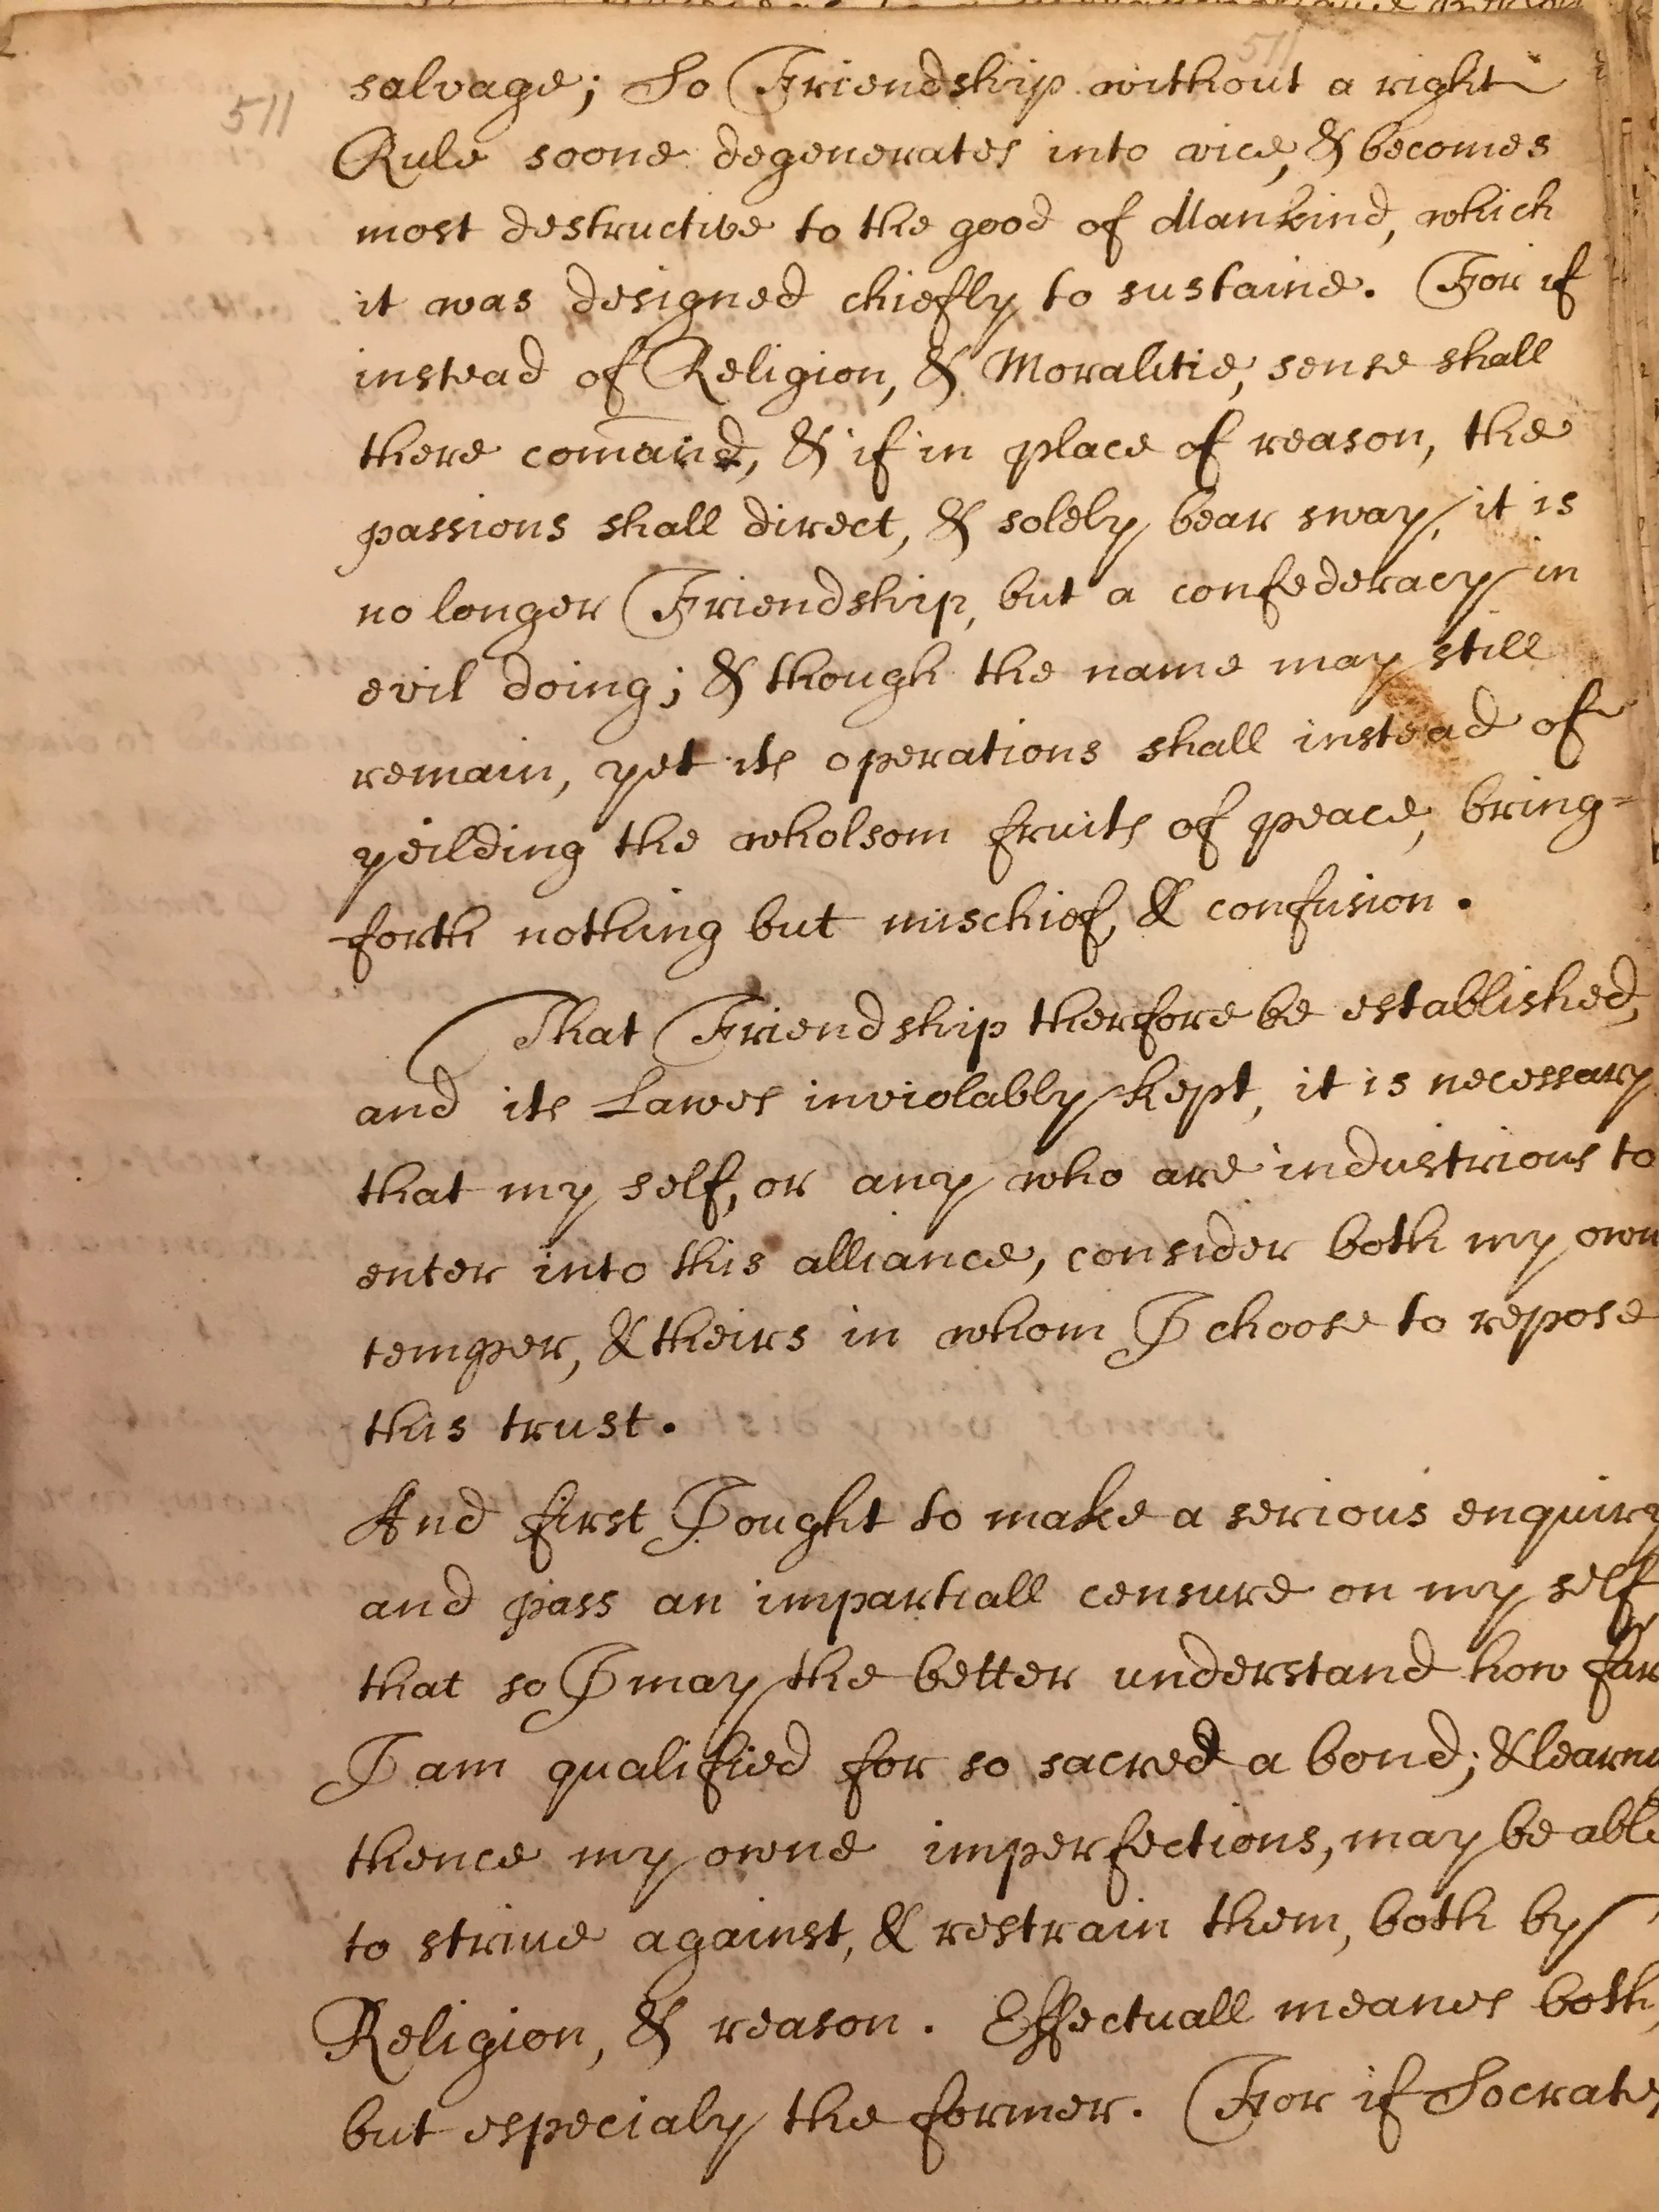 511
salvage; So Friendship without a right
Rule soone degenerates into vice, & becomes
most destructive to the good of Mankind, which
it was designed chiefly to sustaine. For if
instead of Religion, & Moralitie, sense shall
there com̄and, & if in place of reason, the
passions shall direct, & solely bear sway, it is
no longer Friendship, but a confederacy in
evil doing; & though the name may still
remain, yet its operations shall instead of
yeilding the wholsom fruits of peace, bring=
forth nothing but mischief, & confusion.
That Friendship therfore be established,
and its Lawes inviolably kept, it is necessary
that my self, or any who are industrious to
enter into this alliance, consider both my own
temper, & theirs in whom I choose to repose
this trust.
And first I ought to make a serious enquiry
and pass an impartiall censure on my self
that so I may the better understand how far
I am qualified for so sacred a bond; & learn
thence my owne imperfections, may be able
to strive against, & restrain them, both by
Religion, & reason. Effectuall meanes both,
but especialy the former. For if Socrates